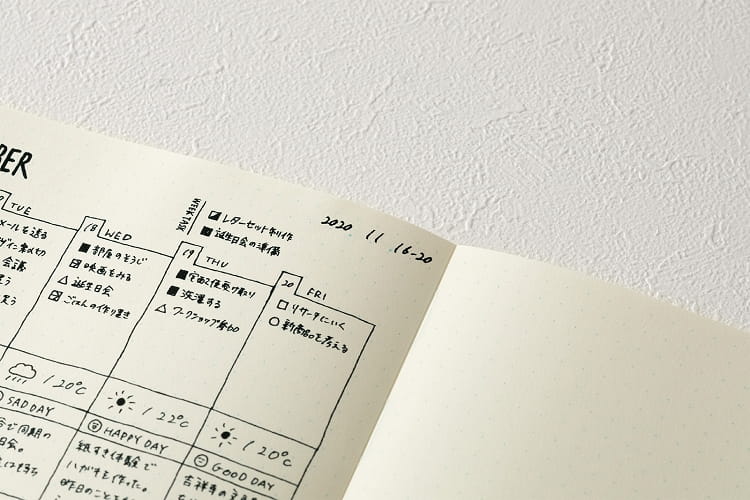 BER
2020 11 16-20
WEEK TASK
レターセット制作
誕生日会の準備
TUE
メールを送る
会議
18 WED
部屋のそうじ
映画をみる
誕生日会
ごはんの作り置き
19 THU
宅配便受け取り
洗濯する
ワークショップ参加
20 FRI
リサーチにいく
新商品を考える
/ 20°C
/ 22°C
/ 20°C
SAD DAY
HAPPY DAY
GOOD DAY
同期の
日会。
紙すき体験で
ハガキを作った。
昨日のことを
吉祥寺の